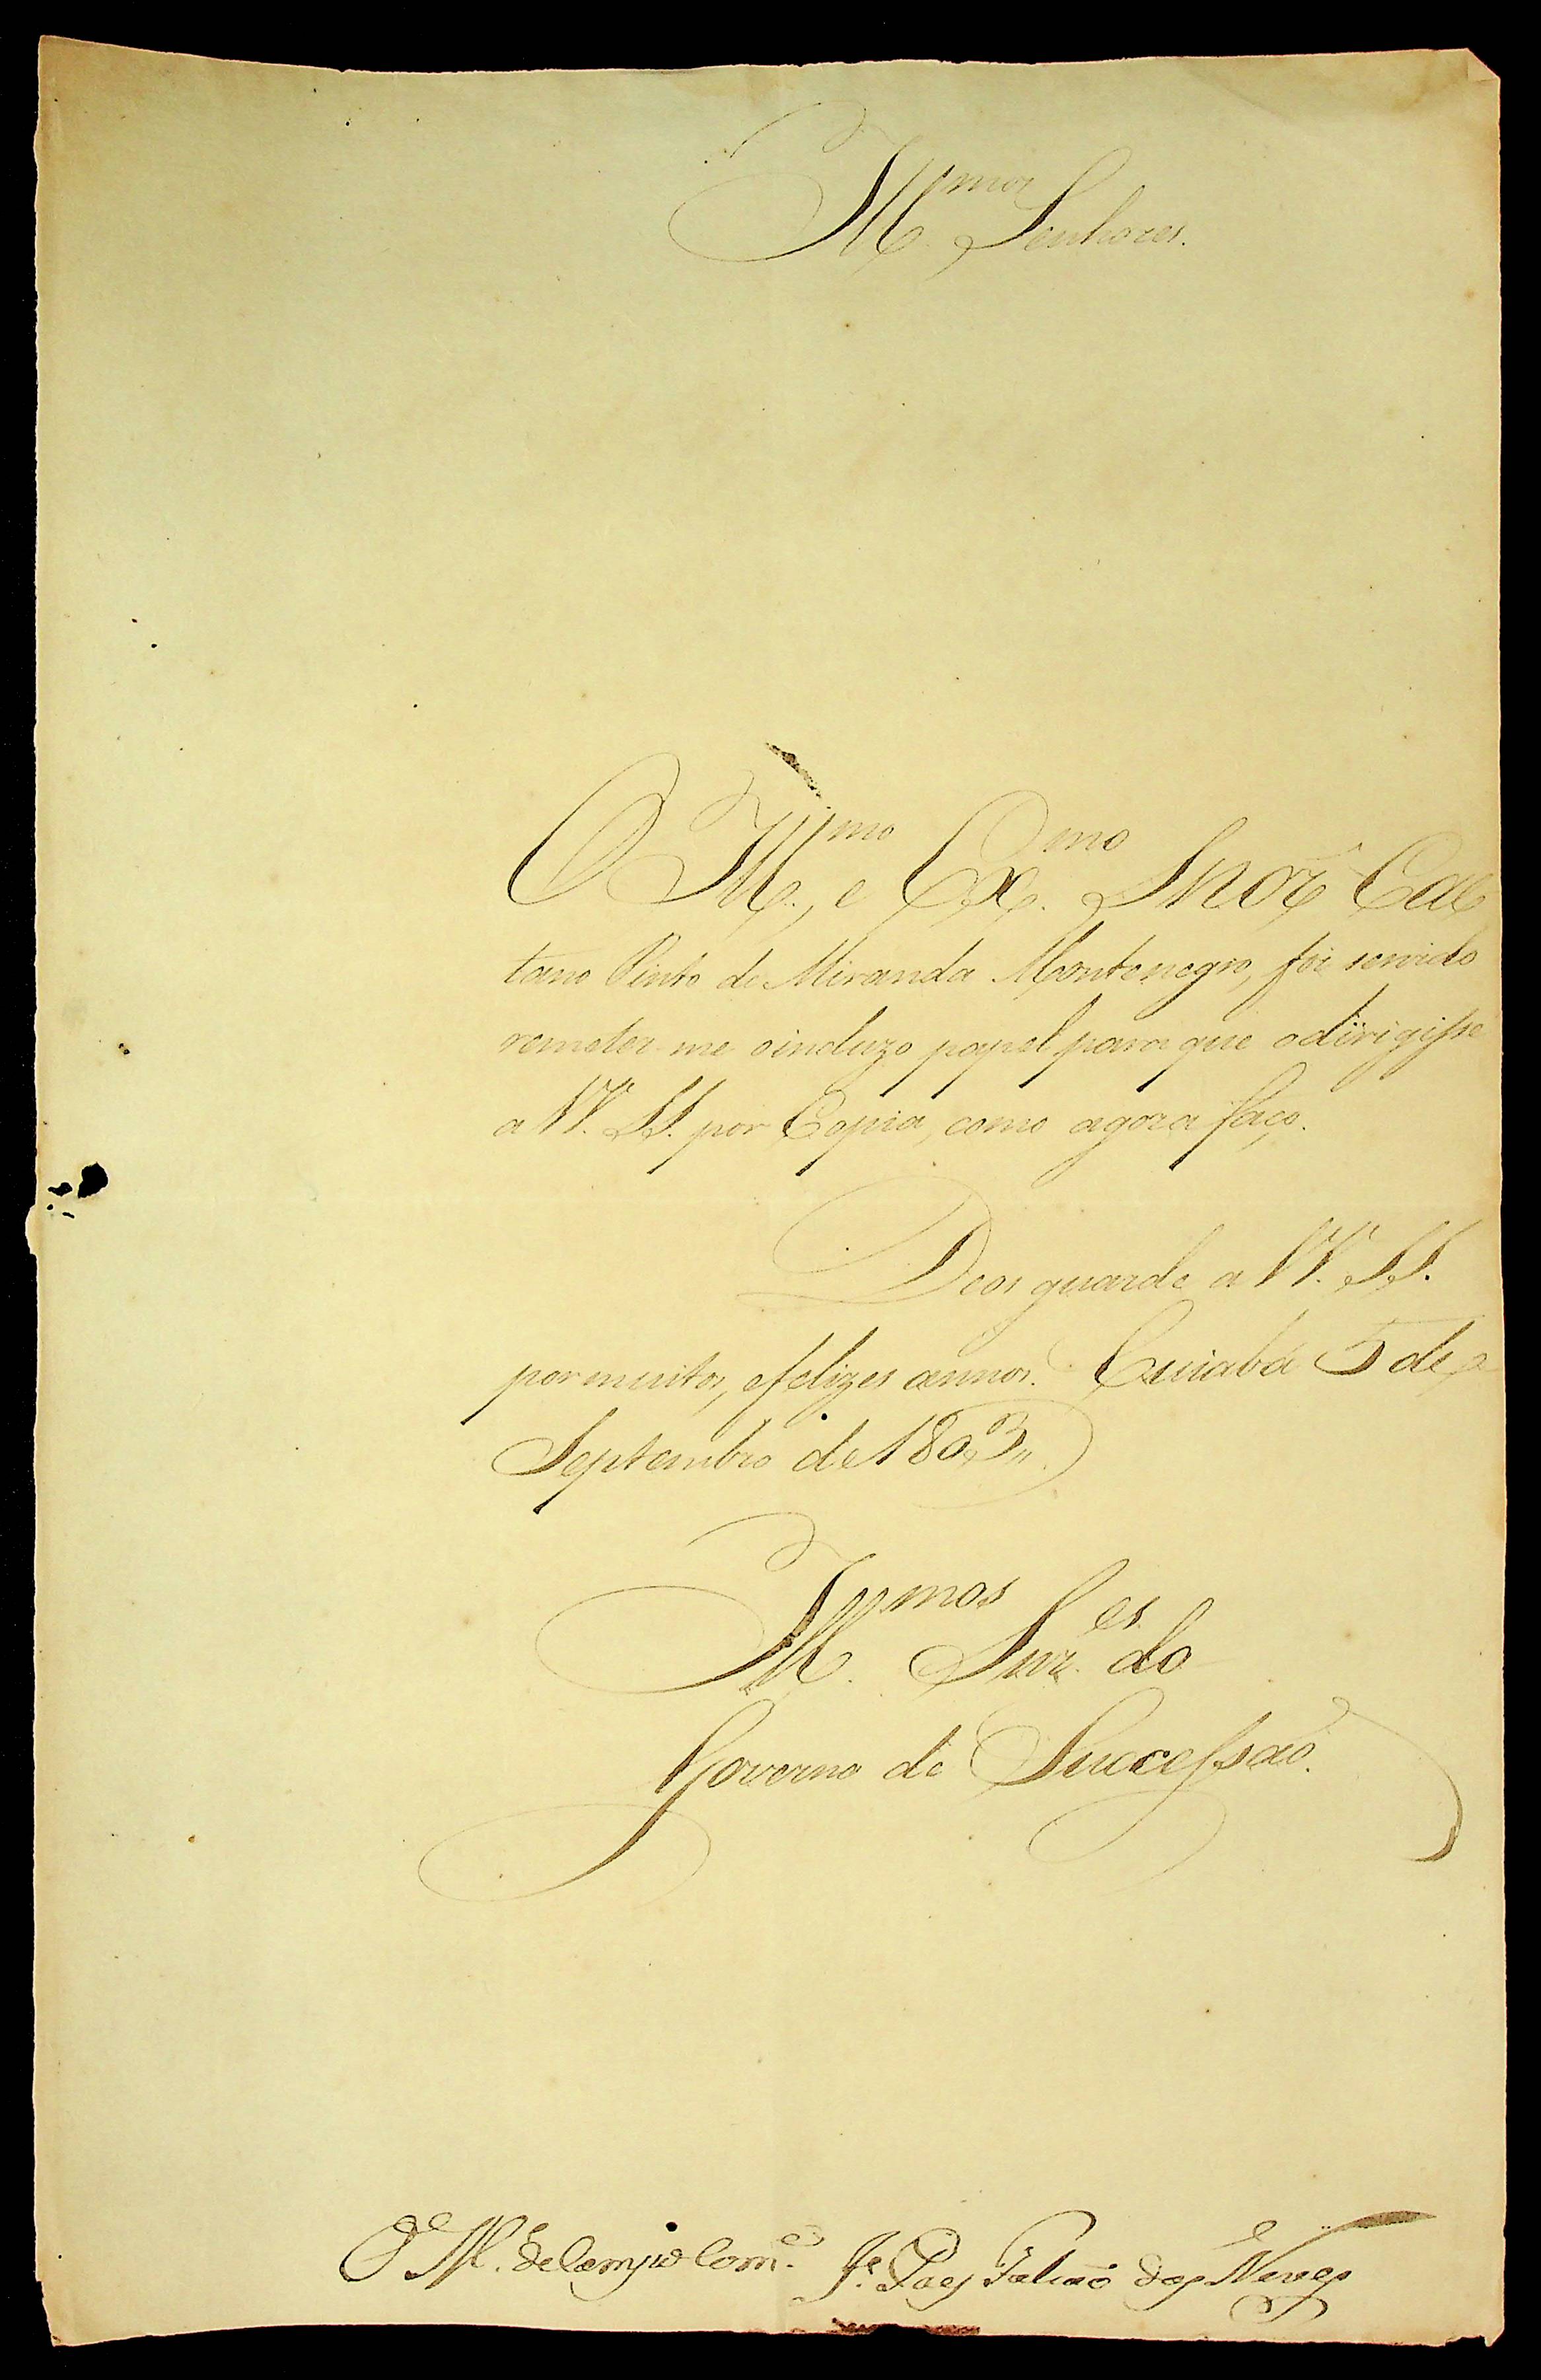 Ill.mos Senhores.
O Ill.mo, e Ex.mo Snor Cae
tano Pinto de Miranda Montenegro, foi servido
remeter-me o incluzo papel para que o dirigisse
a VV. SS. por Copia, como agora faço.
Deos guarde a VV. SS.
por muitos, e felizes annos. Cuiabá 5 de
Septembro de 1803,,.
Ill.mos Snr.es do
Governo de Successaõ.
O M.e de Campo Com.e J.e Paes Falcaõ das Neves